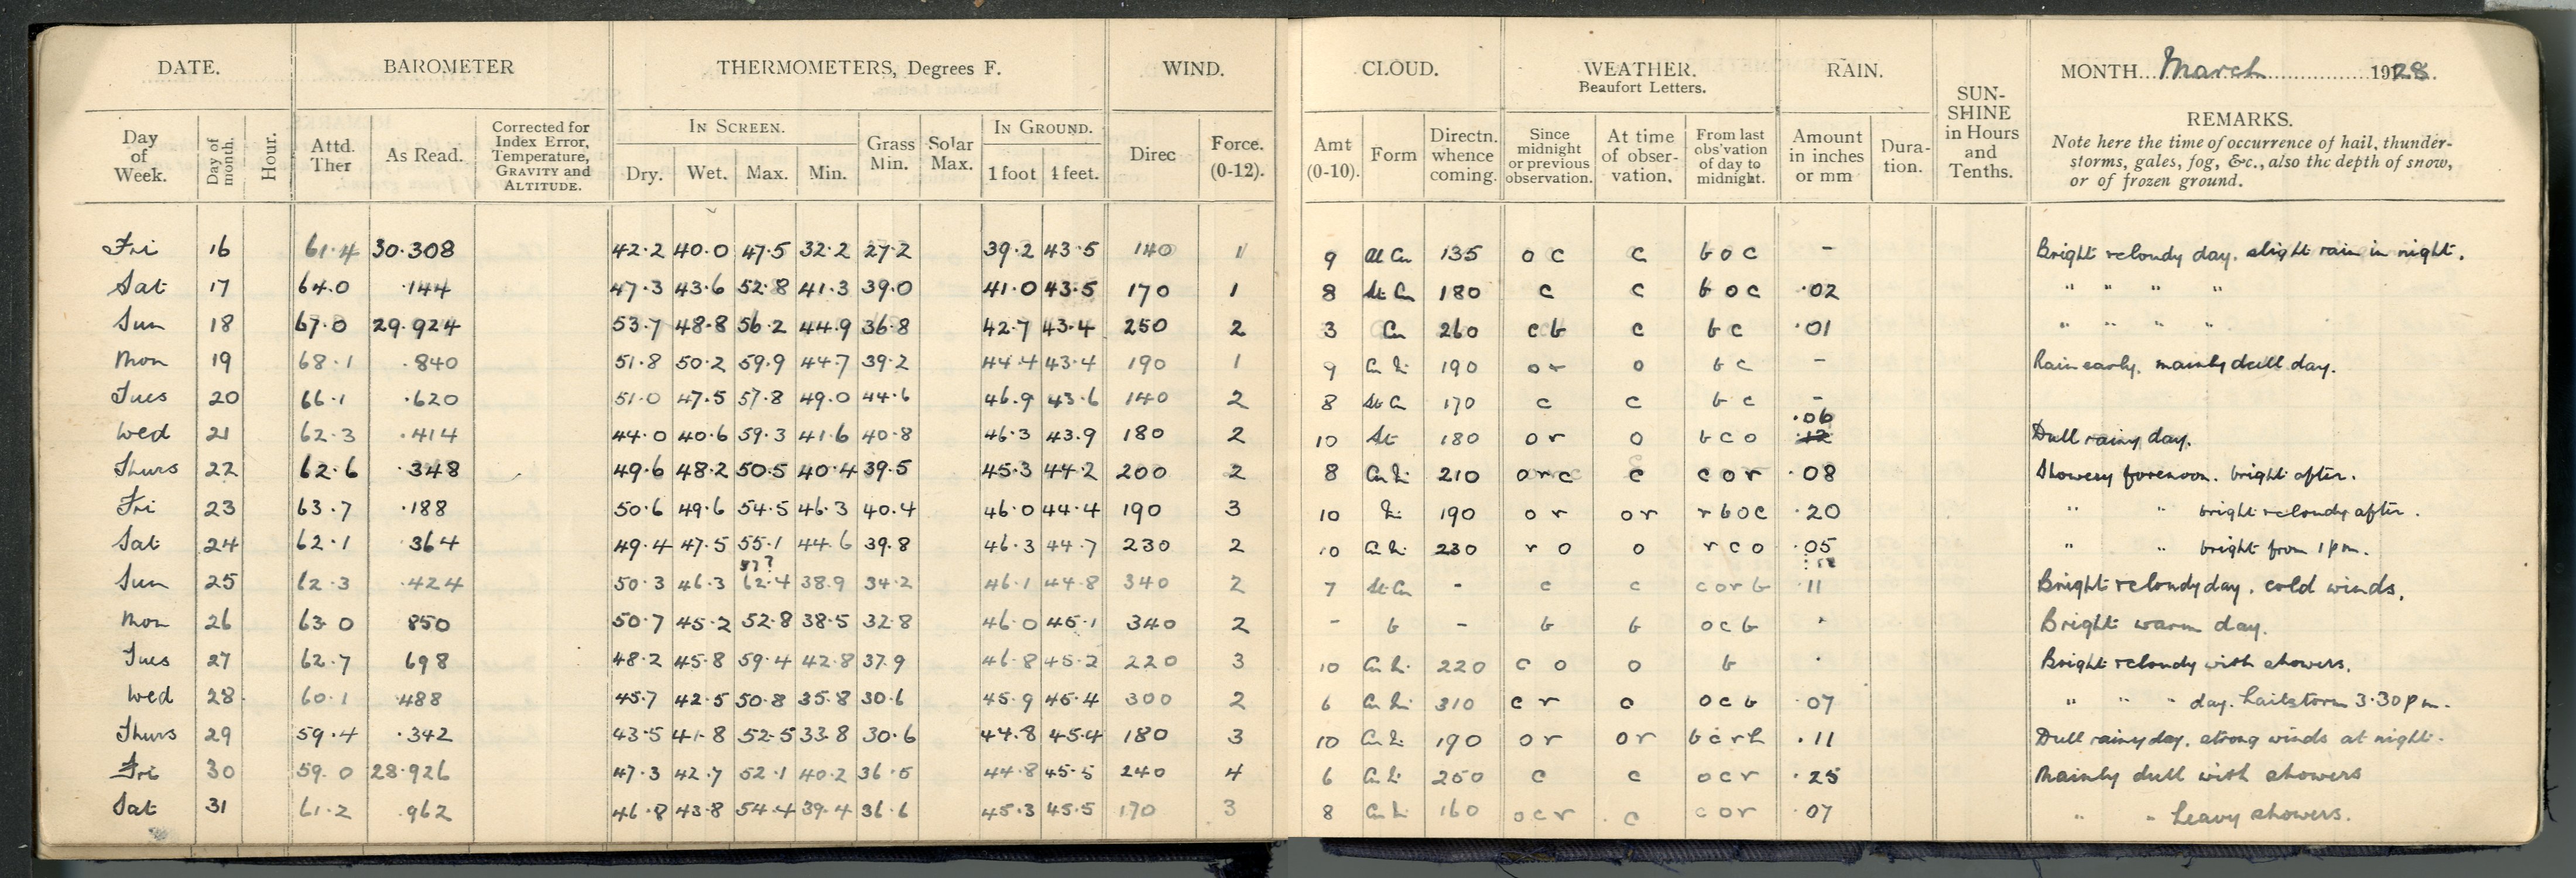 DATE. BAROMETER THERMOMETERS, Degrees F. WIND. CLOUD. WEATHER. Beaufort Letters. RAIN. SUN-SHINE in Hours and Tenths. MONTH... March ... 1928.
REMARKS.
Note here the time of occurrence of hail, thunder-
storms, gales, fog, &c., also the depth of snow,
or of frozen ground.
IN SCREEN. IN GROUND.
Day of Week. Day of month. Hour. Attd. Ther As Read. Corrected for Index Error, Temperature, GRAVITY and ALTITUDE. Dry. Wet. Max. Min. Grass Min. Solar Max. 1 foot 4 feet. Direc Force. (0-12). Amt (0-10). Form Directn. whence coming. Since midnight or previous observation. At time of obser-vation. From last obs'vation of day to midnight. Amount in inches or mm Dura-tion.
Fri 16 61.4 30.308 42.2 40.0 47.5 32.2 27.2 39.2 43.5 140 1 9 Al Cu 135 o c c b o c - Bright & cloudy day. slight rain in night.
Sat 17 64.0 .144 47.3 43.6 52.8 41.3 39.0 41.0 43.5 170 1 8 St Cu 180 c c b o c .02 " " " "
Sun 18 67.0 29.924 53.7 48.8 56.2 44.9 36.8 42.7 43.4 250 2 3 Cu 260 c b c b c .01 " " " "
Mon 19 68.1 .840 51.8 50.2 59.9 44.7 39.2 44.4 43.4 190 1 9 Cu Ni 190 o r o b c - Rain early. mainly dull day.
Tues 20 66.1 .620 51.0 47.5 57.8 49.0 44.6 46.9 43.6 140 2 8 St Cu 170 c c b c -
.06
Wed 21 62.3 .414 44.0 40.6 59.3 41.6 40.8 46.3 43.9 180 2 10 St 180 o r o b c o .12 Dull rainy day.
Thurs 22 62.6 .348 49.6 48.2 50.5 40.4 39.5 45.3 44.2 200 2 8 Cu Ni 210 o r c c c o r .08 Showery forenoon. bright after.
Fri 23 63.7 .188 50.6 49.6 54.5 46.3 40.4 46.0 44.4 190 3 10 Ni 190 o r o r r b o c .20 " " bright & cloudy after.
Sat 24 62.1 .364 49.4 47.5 55.1 44.6 39.8 46.3 44.7 230 2 10 Cu Ni 230 r o o r c o .05 " " bright from 1 pm.
57?
Sun 25 62.3 .424 50.3 46.3 62.4 38.9 34.2 46.1 44.8 340 2 7 St Cu - c c c o r b .11 Bright & cloudy day. cold winds.
Mon 26 63.0 850 50.7 45.2 52.8 38.5 32.8 46.0 45.1 340 2 - b - b b o c b . Bright warm day.
Tues 27 62.7 698 48.2 45.8 59.4 42.8 37.9 46.8 45.2 220 3 10 Cu Ni 220 c o o b . Bright & cloudy with showers.
Wed 28 60.1 .488 45.7 42.5 50.8 35.8 30.6 45.9 45.4 300 2 6 Cu Ni 310 c r c o c b .07 " " " day. hailstorm 3.30 pm.
Thurs 29 59.4 .342 43.5 41.8 52.5 33.8 30.6 44.8 45.4 180 3 10 Cu Ni 190 o r o r b c r h .11 Dull rainy day. strong winds at night.
Fri 30 59.0 28.926 47.3 42.7 52.1 40.2 36.5 44.8 45.5 240 4 6 Cu Ni 250 c c o c r .25 Mainly dull with showers
Sat 31 61.2 .962 46.8 43.8 54.4 39.4 36.6 45.3 45.5 170 3 8 Cu Ni 160 o c r c c o r .07 " " heavy showers.